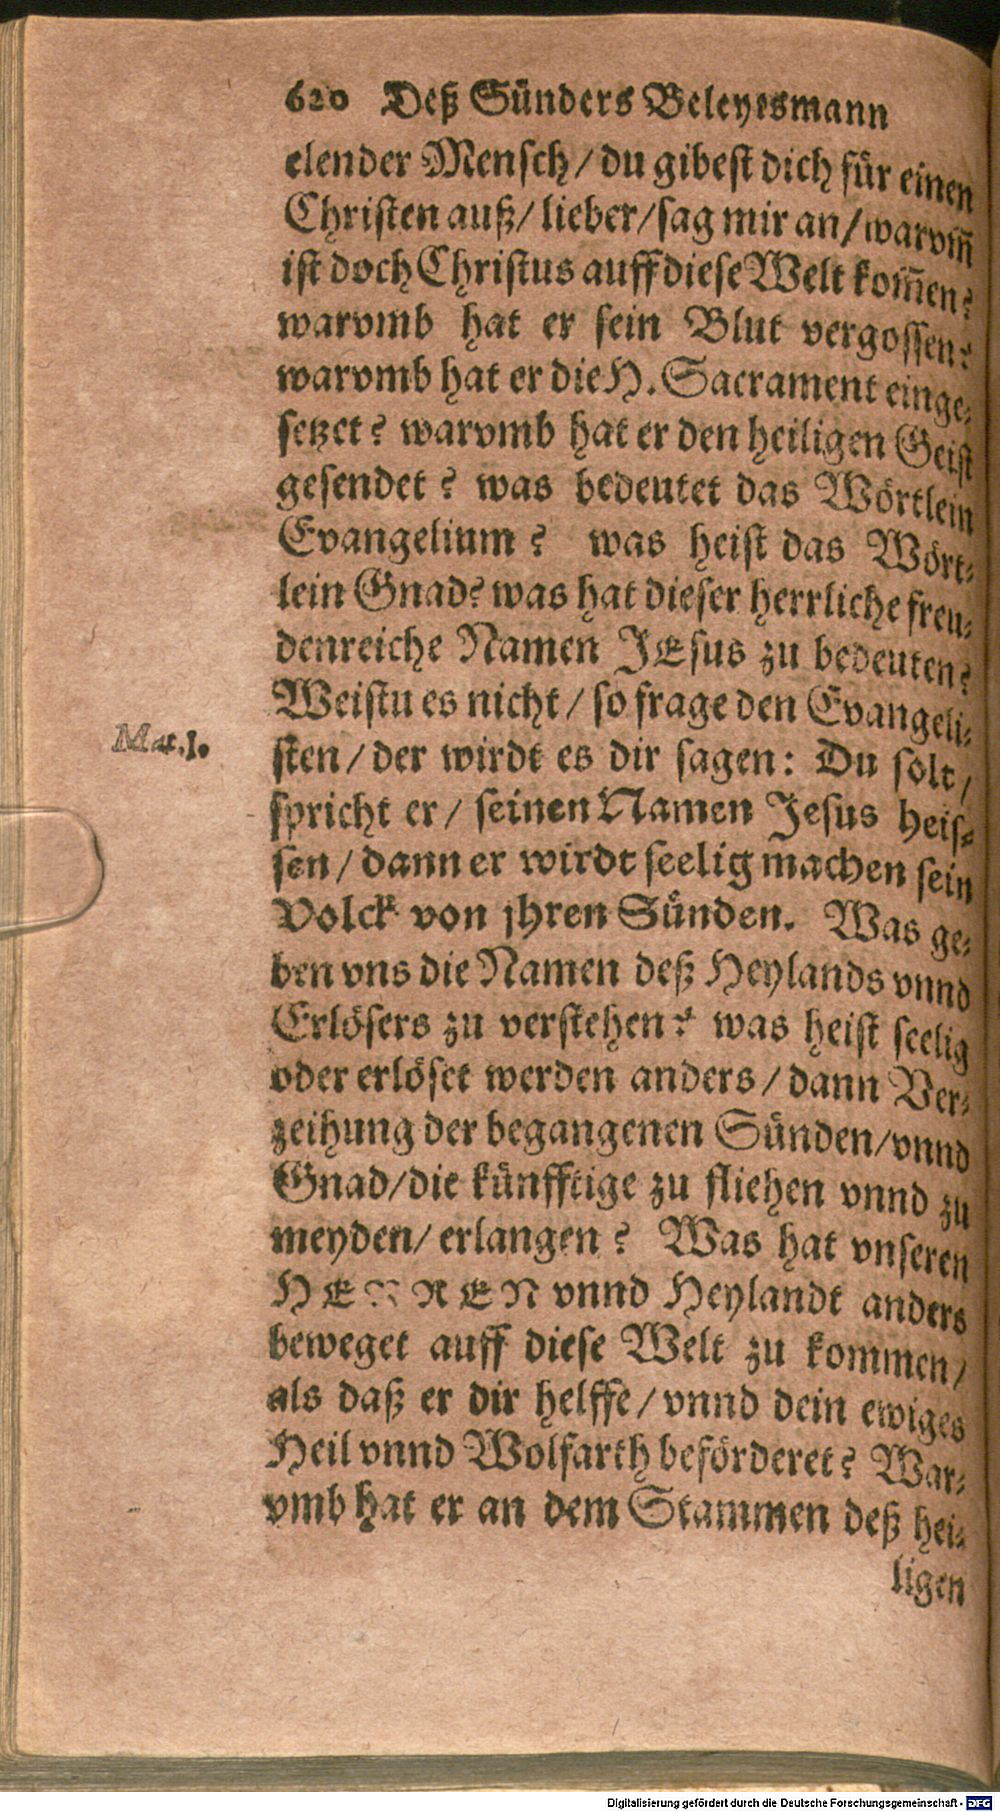 620 Deß Sünders Beleyesmann
elender Mensch/ du gibest dich für einen
Christen auß/ lieber/ sag mir an/ warvm̃
ist doch Christus auff diese Welt kom̃en?
warvmb hat er sein Blut vergossen?
warvmb hat er die H. Sacrament einge-
setzet? warvmb hat er den heiligen Geist
gesendet? was bedeutet das Wörtlein
Evangelium? was heist das Wört-
lein Gnad? was hat dieser herrliche freu-
denreiche Namen JEsus zu bedeuten?
Weistu es nicht/ so frage den Evangeli-
Mat.1.
sten/ der wirdt es dir sagen: Du solt/
spricht er/ seinen Namen Jesus heis-
sen/ dann er wirdt seelig machen sein
Volck von jhren Sünden. Was ge-
ben vns die Namen deß Heylands vnnd
Erlösers zu verstehen? was heist seelig
oder erlöset werden anders/ dann Ver-
zeihung der begangenen Sünden/ vnnd
Gnad/ die künfftige zu fliehen vnnd zu
meyden/ erlangen? Was hat vnseren
HERREN vnnd Heylandt anders
beweget auff diese Welt zu kommen/
als daß er dir helffe/ vnnd dein ewiges
Heil vnnd Wolfarth beförderet? War-
vmb hat er an dem Stammen deß hei-
ligen
Digitalisierung gefördert durch die Deutsche Forschungsgemeinschaft - DFG